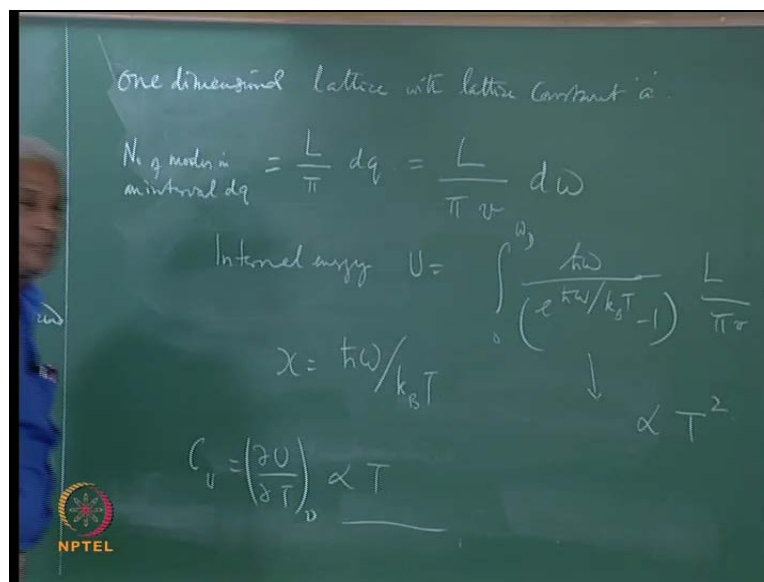 One dimensional lattice with lattice constant 'a'.
No of modes in an interval dq = L/π dq = L/πv dω
Internal energy U = ∫₀^ω_D ħω/(e^{ħω/k_BT} - 1) L/πv
↓
x = ħω/k_BT
∝ T²
C_v = (∂U/∂T)_v ∝ T
NPTEL